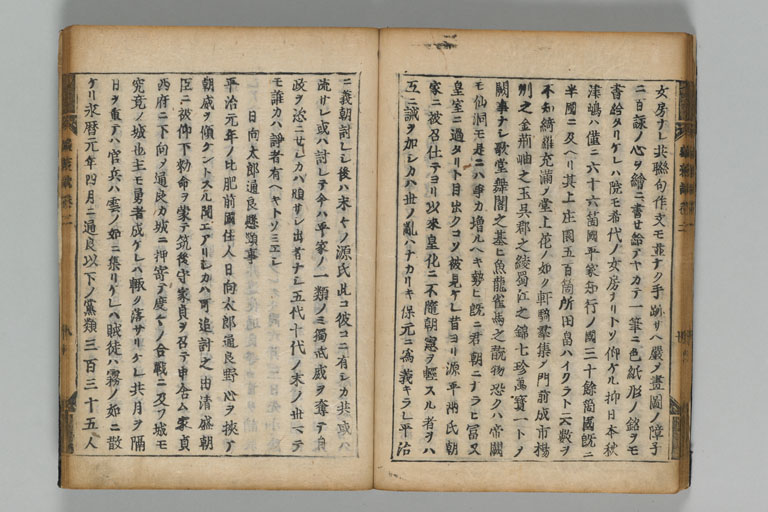 女房ナレ共聯句作文モ畫ナク手跡サヘ嚴ノ畫圖ノ障子
ニ百詠ノ心ヲ繪ニ書セ給アヤカテ一筆ニ色紙形ノ銘ヲモ
書給タリケレハ院モ希代ノ女房ナリトソ仰ケル抑日本秋
津嶋ハ僅ニ六十六箇國平家知行ノ國三十餘箇國既ニ
半國ニ及ヘリ其上庄園五百箇所田畠ハイクラト云數ヲ
不知綺羅充滿ノ堂上花ノ如ク軒騎羣集ノ門前成市楊
州之金荊岫之玉呉郡之綾蜀江之錦七珍萬寶一トノ
闕事ナシ歌堂舞閣之基ヒ魚龍雀馬之翫物恐クハ帝闕
モ仙洞モ是ニハ爭カ増ルヘキ勢ヒ既ニ君朝ニナラヒ冨又
皇室ニ過タリト目出クコソ被見ケレ昔ヨリ源平兩氏朝
家ニ被召仕テヨリ以來皇化ニ不隨朝憲ヲ輕スル者ヲハ
互ニ誡ヲ加シカハ世ノ亂ハナカリキ保元ニ爲義キラレ平治
ニ義朝討レシ後ハ末々ノ源氏此コ彼コニ有シカ共或ハ
流サレ或ハ討レテ今ハ平家ノ一類ノミ獨戚威ヲ奪テ自
政ヲ恣ニセシカハ頭サシ出者ナシ五代十代ノ末ノ世マテ
モ誰カハ諍者有ヘキトソミエシ
日向太郎通良懸頸事
平治元年ノ比肥前國住人日向太郎通良野心ヲ挾テ
朝威ヲ傾ケントスル聞エアリシカハ可追討之由清盛朝
臣ニ被仰下勅命ヲ蒙テ筑後守家貞ヲ召テ申含ム家貞
西府ニ下向メ通良カ城ニ押寄テ度々ノ合戰ニ及フ城モ
究竟ノ城也主モ勇者成ケレハ輙ク落サリケレ共月ヲ隔
日ヲ重テハ官兵ハ雲ノ如ニ集リケレハ賊徒ハ霧ノ如ニ散
ケリ永暦元年四月ニ通良以下ノ黨類三百三十五人